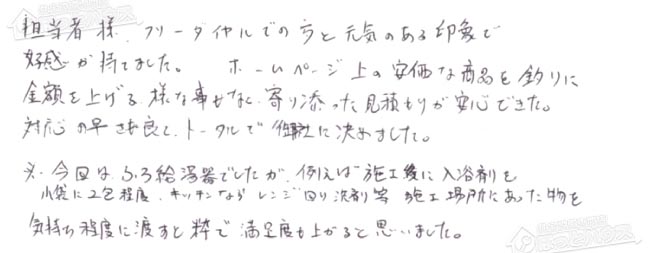 担当者様、フリーダイヤルでの方と元気のある印象で
好感が持てました。 ホームページ上の安価な商品を釣りに
金額を上げる様な事もなく、寄り添った見積もりが安心できた。
対応の早さも良く、トータルで 御社に決めました。
※ 今回は、ふろ給湯器でしたが、例えば施工後に入浴剤を
小袋に2包程度、キッチンなら レンジ回り洗剤等 施工場所にあった物を
気持ち程度に渡すと粋で満足度も上がると思いました。